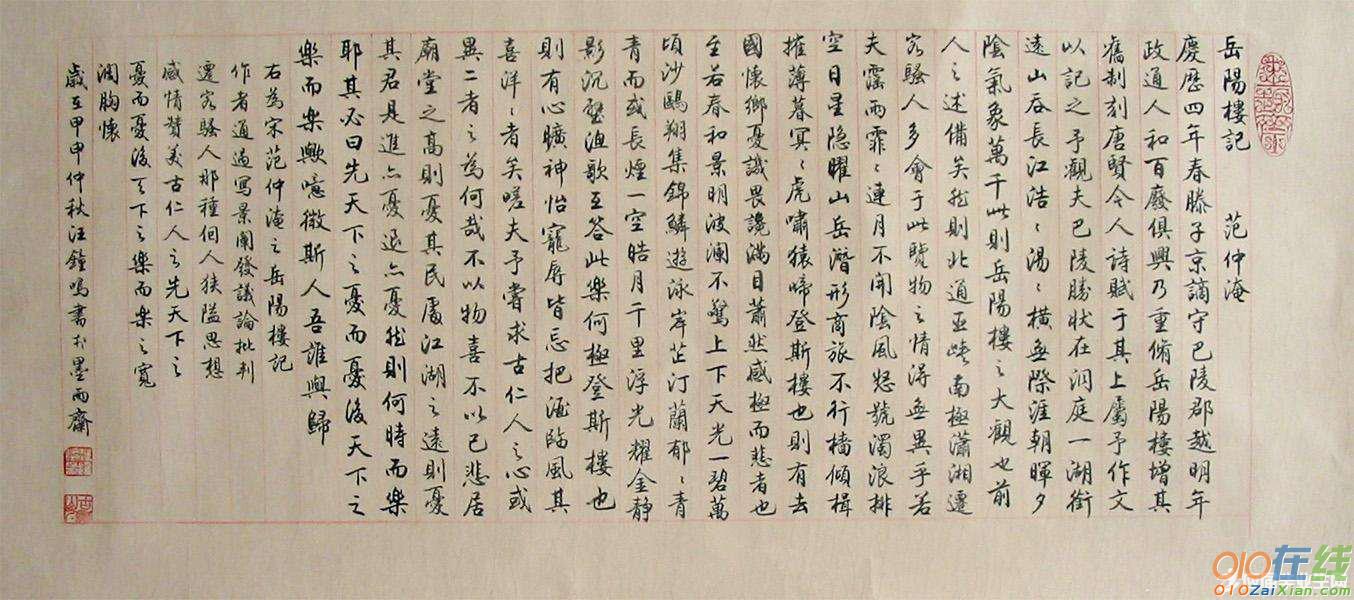 岳陽樓記 范仲淹
慶歷四年春滕子京謫守巴陵郡越明年
政通人和百廢俱興乃重脩岳陽樓增其
舊制刻唐賢今人詩賦于其上屬予作文
以記之予觀夫巴陵勝狀在洞庭一湖銜
遠山吞長江浩〻湯〻橫無際涯朝暉夕
陰氣象萬千此則岳陽樓之大觀也前
人之述備矣然則北通巫峽南極瀟湘遷
客騷人多會于此覽物之情得無異乎若
夫霪雨霏〻連月不開陰風怒號濁浪排
空日星隐曜山岳潛形商旅不行檣傾楫
摧薄暮冥〻虎嘯猿啼登斯樓也則有去
國懷鄉憂譏畏讒滿目蕭然感極而悲者也
至若春和景明波瀾不驚上下天光一碧萬
頃沙鷗翔集錦鱗遊泳岸芷汀蘭郁〻青
青而或長煙一空皓月千里浮光耀金静
影沉璧漁歌互答此樂何極登斯樓也
則有心曠神怡寵辱皆忘把酒臨風其
喜洋〻者矣嗟夫予嘗求古仁人之心或
異二者之為何哉不以物喜不以己悲居
廟堂之高則憂其民處江湖之遠則憂
其君是進亦憂退亦憂然則何時而樂
耶其必曰先天下之憂而憂後天下之
樂而樂歟噫微斯人吾誰與歸
右為宋范仲淹之岳陽樓記
作者通過寫景闡發議論批判
遷客騷人那種個人狹隘思想
感情贊美古仁人之先天下之
憂而憂後天下之樂而樂之寬
闊胸懷
歲在甲申仲秋汪鐘鳴書於墨雨齋
010在线
010ZaiXian.com